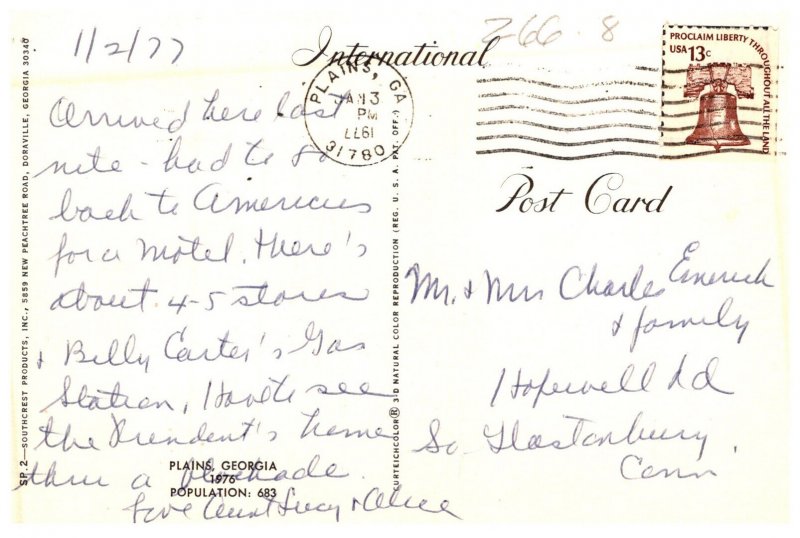 1/2/77
Arrived here last
nite - had to go
back to Americus
for a motel. There's
about 4-5 stores
& Billy Carter's Gas
Station, Had to see
the President's home
thru a blockade.
Love Aunt Lucy & Alice
PLAINS, GEORGIA
1976
POPULATION: 683
SP. 2—SOUTHCREST PRODUCTS, INC., 5859 NEW PEACHTREE ROAD, DORAVILLE, GEORGIA 30340
CURTEICHCOLOR® 3-D NATURAL COLOR REPRODUCTION (REG. U.S.A. PAT. OFF.)
International
266-8
PLAINS, GA
JAN 3
PM
1977
31780
PROCLAIM LIBERTY THROUGHOUT ALL THE LAND
USA 13c
Post Card
Mr. & Mrs Charles Emerich
& family
Hopewell Rd
So. Glastonbury,
Conn